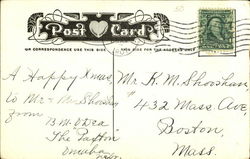 Post Card
OR CORRESPONDENCE USE THIS SIDE
SIDE FOR THE ADDRESS ONLY
A Happy Xmas
to Mr & Mrs
from
The Paxton
Omaha
Mr. K. M.
#432 Mass Ave,
Boston,
Mass.